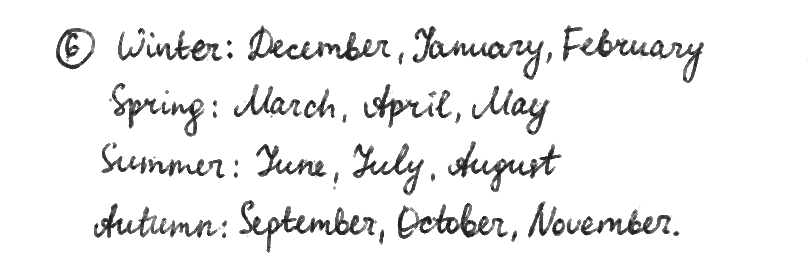 ⑥ Winter: December, January, February
Spring: March, April, May
Summer: June, July, August
Autumn: September, October, November.